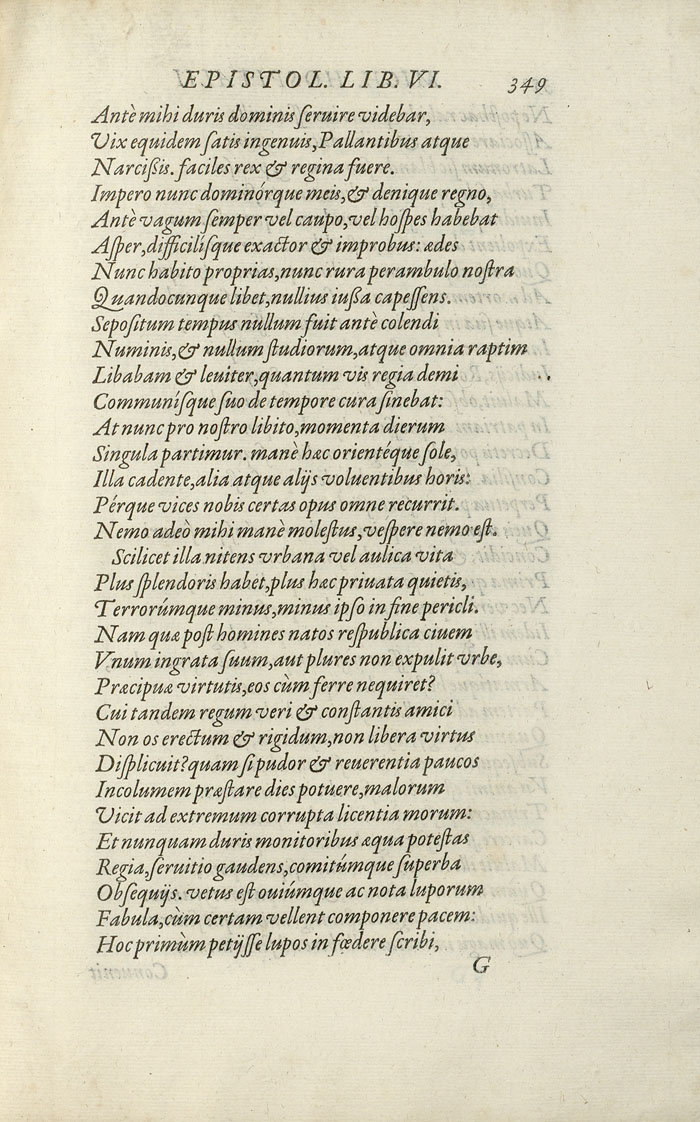 EPISTOL. LIB. VI. 349
Antè mihi duris dominis ſeruire videbar,
Vix equidem ſatis ingenuis, Pallantibus atque
Narcißis. faciles rex & regina fuere.
Impero nunc dominórque meis, & denique regno,
Antè vagum ſemper vel caupo, vel hoſpes habebat
Aſper, difficilíſque exactor & improbus: ædes
Nunc habito proprias, nunc rura perambulo noſtra
Quandocunque libet, nullius iußa capeſſens.
Sepoſitum tempus nullum fuit antè colendi
Numinis, & nullum ſtudiorum, atque omnia raptim
Libabam & leuiter, quantum vis regia demi
Communíſque ſuo de tempore cura ſinebat:
At nunc pro noſtro libito, momenta dierum
Singula partimur. manè hæc orientéque ſole,
Illa cadente, alia atque alijs voluentibus horis:
Pérque vices nobis certas opus omne recurrit.
Nemo adeò mihi manè moleſtus, veſpere nemo eſt.
Scilicet illa nitens vrbana vel aulica vita
Plus ſplendoris habet, plus hæc priuata quietis,
Terrorúmque minus, minus ipſo in fine pericli.
Nam quæ poſt homines natos reſpublica ciuem
Vnum ingrata ſuum, aut plures non expulit vrbe,
Præcipuæ virtutis, eos cùm ferre nequiret?
Cui tandem regum veri & conſtantis amici
Non os erectum & rigidum, non libera virtus
Diſplicuit? quam ſi pudor & reuerentia paucos
Incolumem præſtare dies potuere, malorum
Vicit ad extremum corrupta licentia morum:
Et nunquam duris monitoribus æqua poteſtas
Regia, ſeruitio gaudens, comitúmque ſuperba
Obſequijs. vetus eſt ouiúmque ac nota luporum
Fabula, cùm certam vellent componere pacem:
Hoc primùm petijſſe lupos in fœdere ſcribi,
G